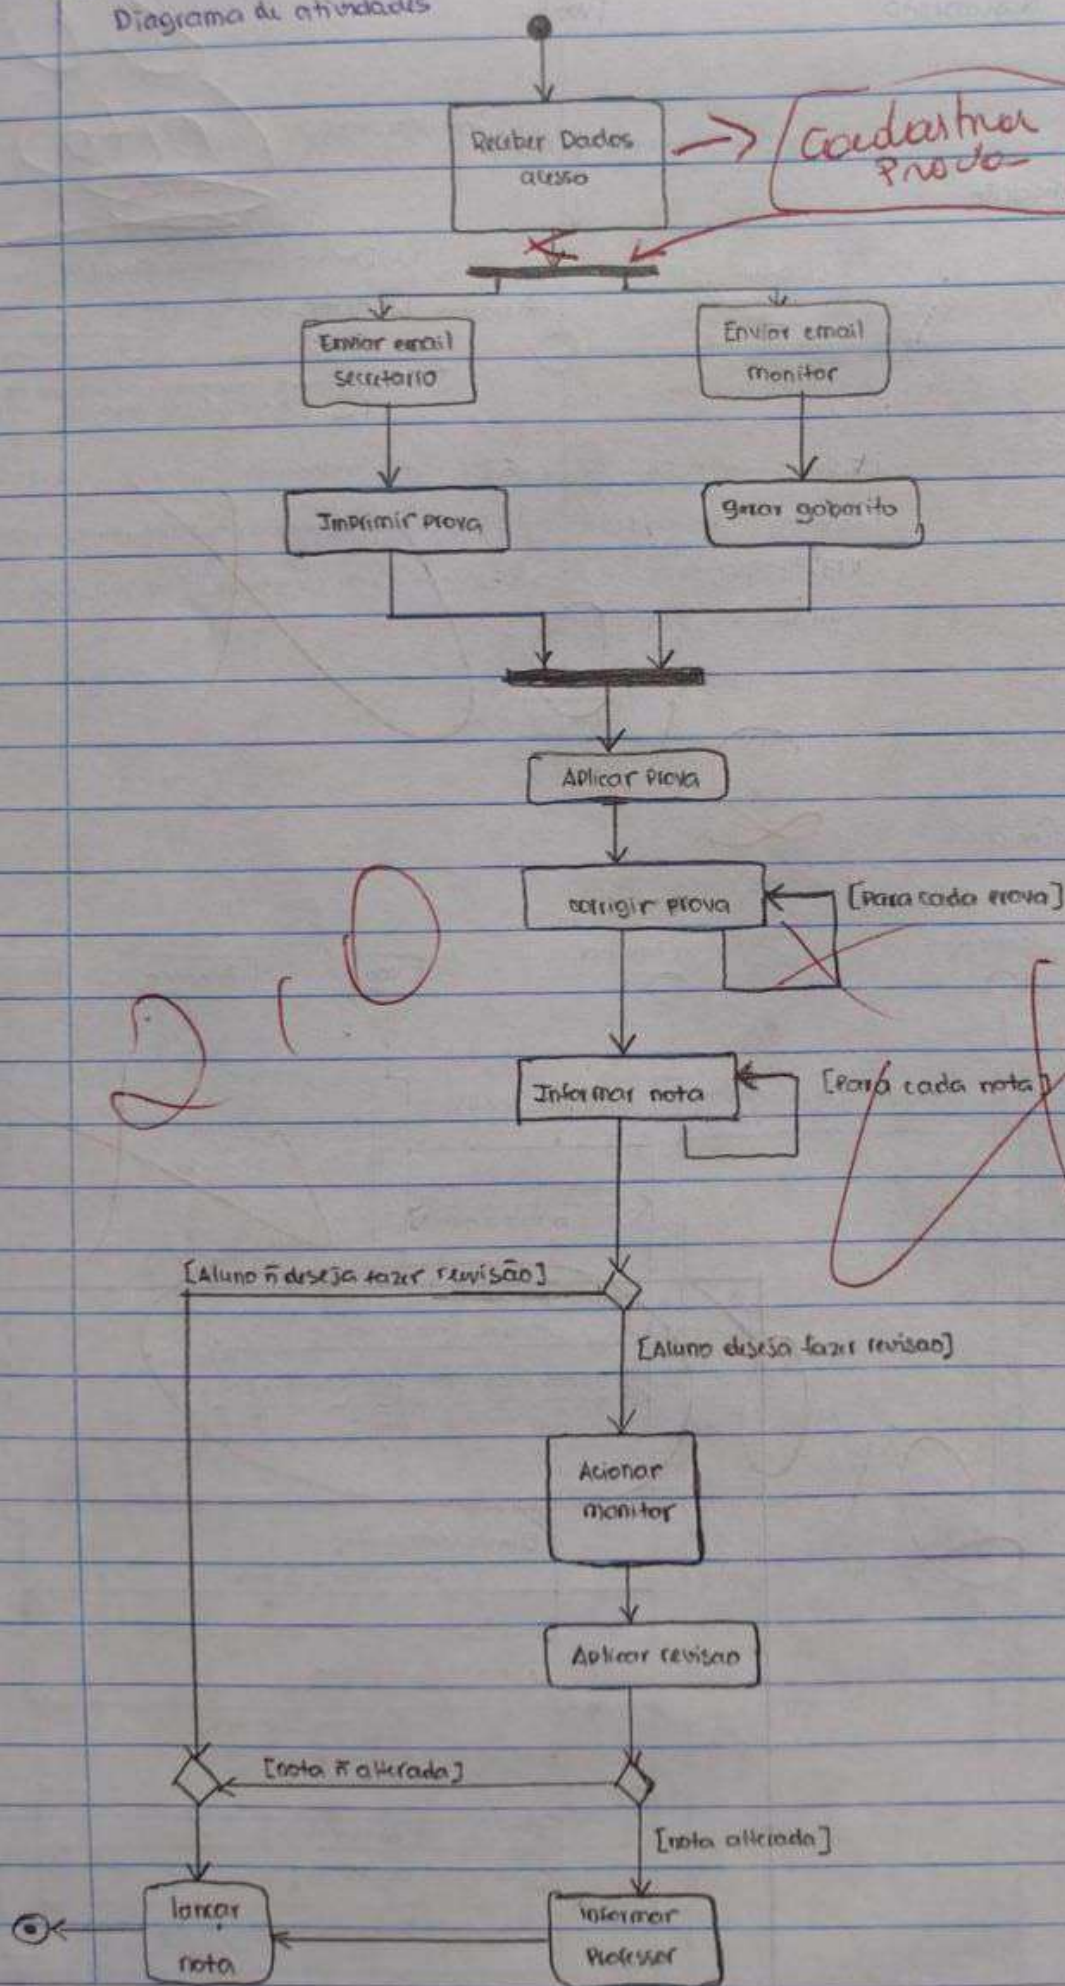 Diagrama de atividades
Receber Dados
acesso
Cadastrar
Prova
Enviar email
secretario
Enviar email
monitor
Imprimir prova
gerar gabarito
Aplicar prova
corrigir prova
[Para cada prova]
2,0
Informar nota
[Para cada nota]
[Aluno ñ deseja fazer revisão]
[Aluno deseja fazer revisao]
Acionar
monitor
Aplicar revisao
[nota ñ alterada]
[nota alterada]
lançar
nota
informar
Professor